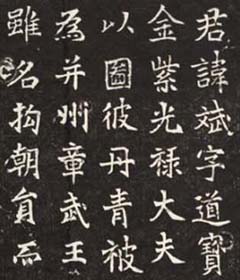 君諱斌字道寶
金紫光禄大夫
以圖彼丹青被
為并州章武王
雖名拘朝員而